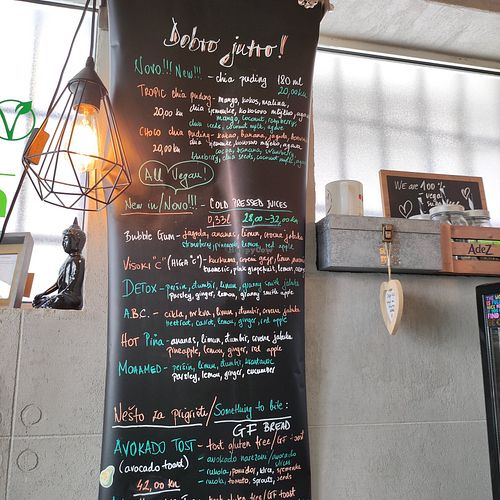 Dobro jutro!
Novo!!! New!!! - chia puding 180 ml
20,00 kn
TROPIC chia puding - mango, kokos, malina,
20,00 kn chia sjemenke, kokosovo mlijeko, agava
mango, coconut, raspberry,
chia seeds, coconut milk, agave
CHOCO chia puding - kakao, banana, jagoda,
20,00 kn chia sjemenke, kokosovo mlijeko, agava
cocoa, banana,
blueberry, chia seeds, coconut milk, agave
All Vegan!
New in/Novo!!! - COLD PRESSED JUICES
0,33l 28,00-32,00 kn
Bubble Gum - jagoda, ananas, limun, crvena jabuka
strawberry, pineapple, lemon, red apple
VISOKI C (HIGH C) - kurkuma, crveni grejp, limun,
turmeric, pink grapefruit, lemon,
DETOX - peršin, đumbir, limun, granny smith jabuka
parsley, ginger, lemon, granny smith apple
A.B.C. - cikla, mrkva, limun, đumbir, crvena jabuka
beetroot, carrot, lemon, ginger, red apple
HOT Piña - ananas, limun, đumbir, crvena jabuka
pineapple, lemon, ginger, red apple
MOHAMED - peršin, limun, đumbir, krastavac
parsley, lemon, ginger, cucumber
Nešto za prigristi/Something to bite:
GF BREAD
AVOKADO TOST - tost gluten free/GF toast
(avocado toast) - avokado narezani/avocado slices
- rukola, pomidor, klice, sjemenke
42,00 kn - rukola, tomato, sprouts, seeds
gluten free/GF toast
WE ARE 100%
vegan
AdeZ
V